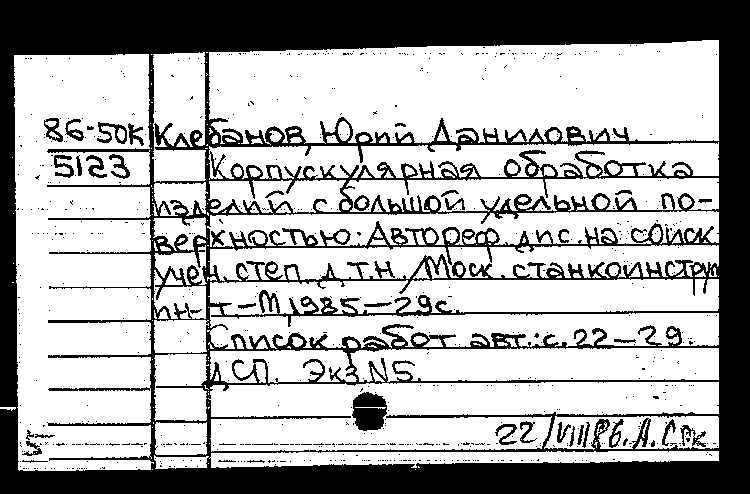 86-50К Клебанов, Юрий Данилович
5123 Корпускулярная обработка
изделий с большой удельной по-
верхностью: Автореф. дис. на соиск
учен. степ. д.т.н. / Моск. станкоинструм
ин-т.-М, 1985.-29с.
Список работ авт.: с. 22-29.
ДСП. Экз.N5.
22/VIII86. А.
5